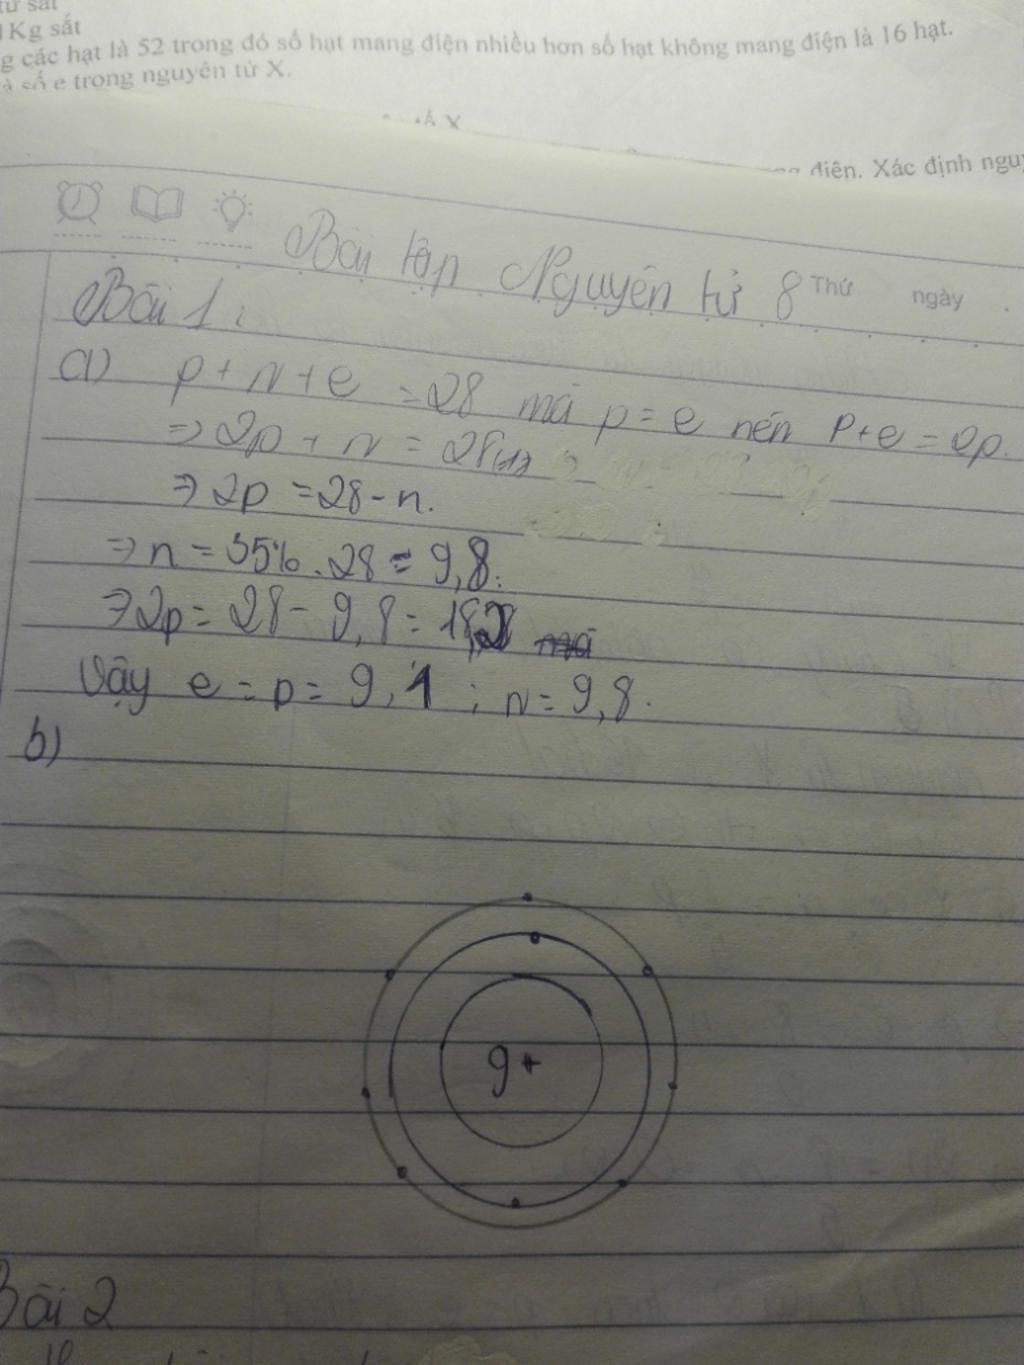 tử sắt
1Kg sắt
g các hạt là 52 trong đó số hạt mang điện nhiều hơn số hạt không mang điện là 16 hạt.
à số e trong nguyên tử X.
X
điện. Xác định nguy
Bài tập Nguyên tử 8
Thứ ngày
Bài 1:
a) p + n + e = 28 mà p = e nên p+e = 2p.
=> 2p + n = 28(1)
=> 2p = 28 - n.
=> n = 35% . 28 = 9,8.
=> 2p = 28 - 9,8 = 18,2
Vậy e = p = 9,1 ; n = 9,8.
b)
9+
Bài 2